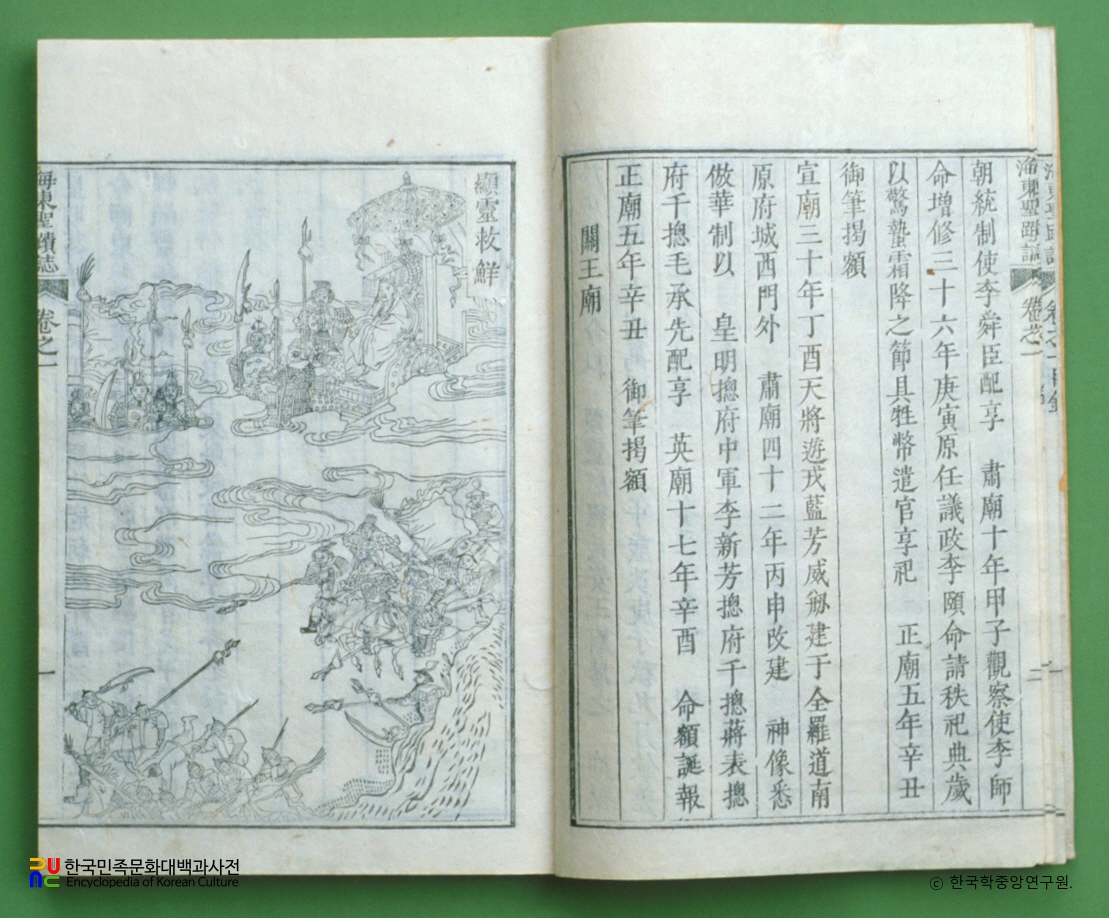 海東聖蹟誌
卷之一
朝統制使李舜臣配享 肅廟十年甲子觀察使李師
命增修三十六年庚寅原任議政李頤命請秩祀典歲
以驚蟄霜降之節具牲幣遣官享祀 正廟五年辛丑
御筆揭額
宣廟三十年丁酉天將遊戎藍芳威剏建于全羅道南
原府城西門外 肅廟四十二年丙申改建 神像悉
倣華制以 皇明摠府中軍李新芳摠府千摠蔣表摠
府千摠毛承先配享 英廟十七年辛酉 命額誕報
正廟五年辛丑 御筆揭額
關王廟
顯靈救鮮
海東聖蹟誌
卷之一
一
한국민족문화대백과사전
Encyclopedia of Korean Culture
© 한국학중앙연구원.